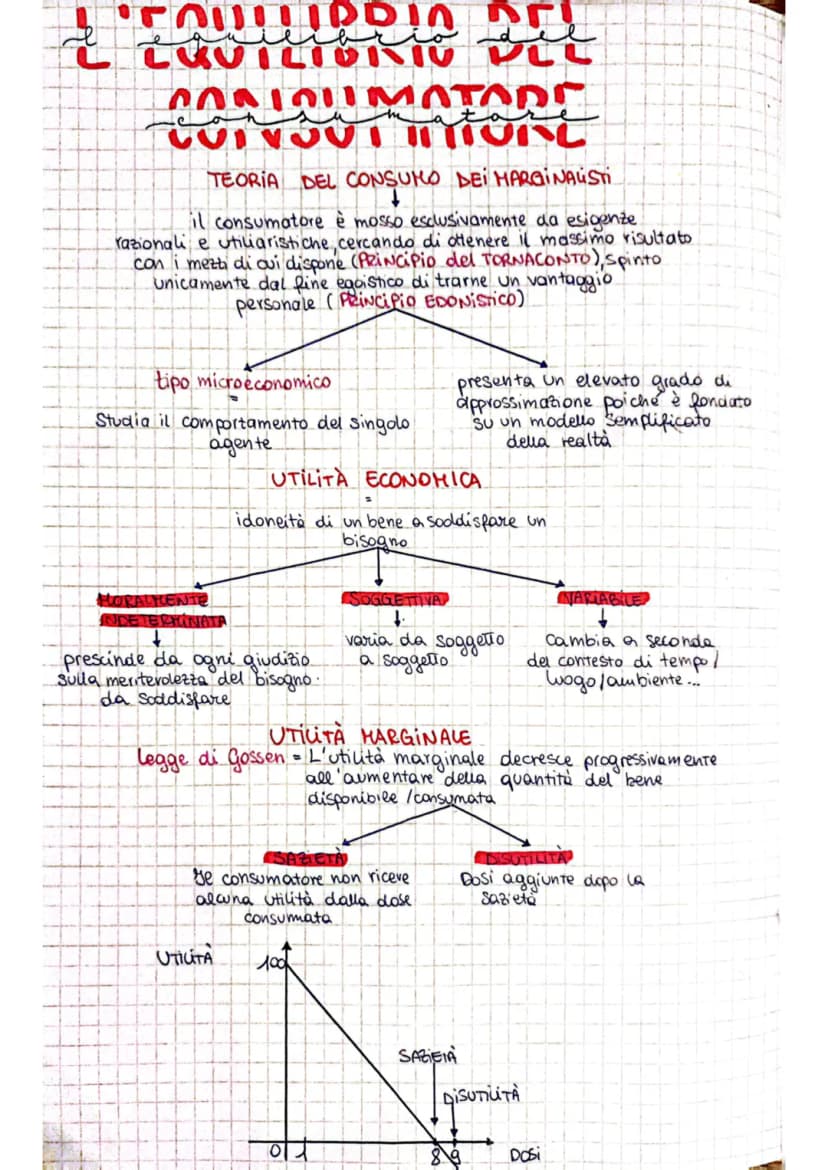 L'EQUILIBRIO DEL
l'equilibrio del
CONSUMATORE
consumatore
TEORIA DEL CONSUMO DEI MARGINALISTI
il consumatore è mosso esclusivamente da esigenze
razionali e utiliaristiche, cercando di ottenere il massimo risultato
con i mezzi di cui dispone (PRINCIPIO del TORNACONTO), spinto
unicamente dal fine egoistico di trarne un vantaggio
personale (PRINCIPIO EDONISTICO)
tipo microeconomico
=
Studia il comportamento del singolo
agente
presenta un elevato grado di
approssimazione poiché è fondato
su un modello semplificato
della realtà
UTILITÀ ECONOMICA
=
idoneità di un bene a soddisfare un
bisogno
MORALMENTE
INDETERMINATA
prescinde da ogni giudizio
sulla meritevolezza del bisogno
da soddisfare
SOGGETTIVA
varia da soggetto
a soggetto
VARIABILE
cambia a seconda
del contesto di tempo/
luogo/ambiente...
UTILITÀ MARGINALE
Legge di Gossen = L'utilità marginale decresce progressivamente
all'aumentare della quantità del bene
disponibile /consumata
SAZIETÀ
Il consumatore non riceve
alcuna utilità dalla dose
consumata
DISUTILITÀ
Dosi aggiunte dopo la
sazietà
UTILITÀ
100
SAZIETÀ
DISUTILITÀ
0 1 8 9 DOSI